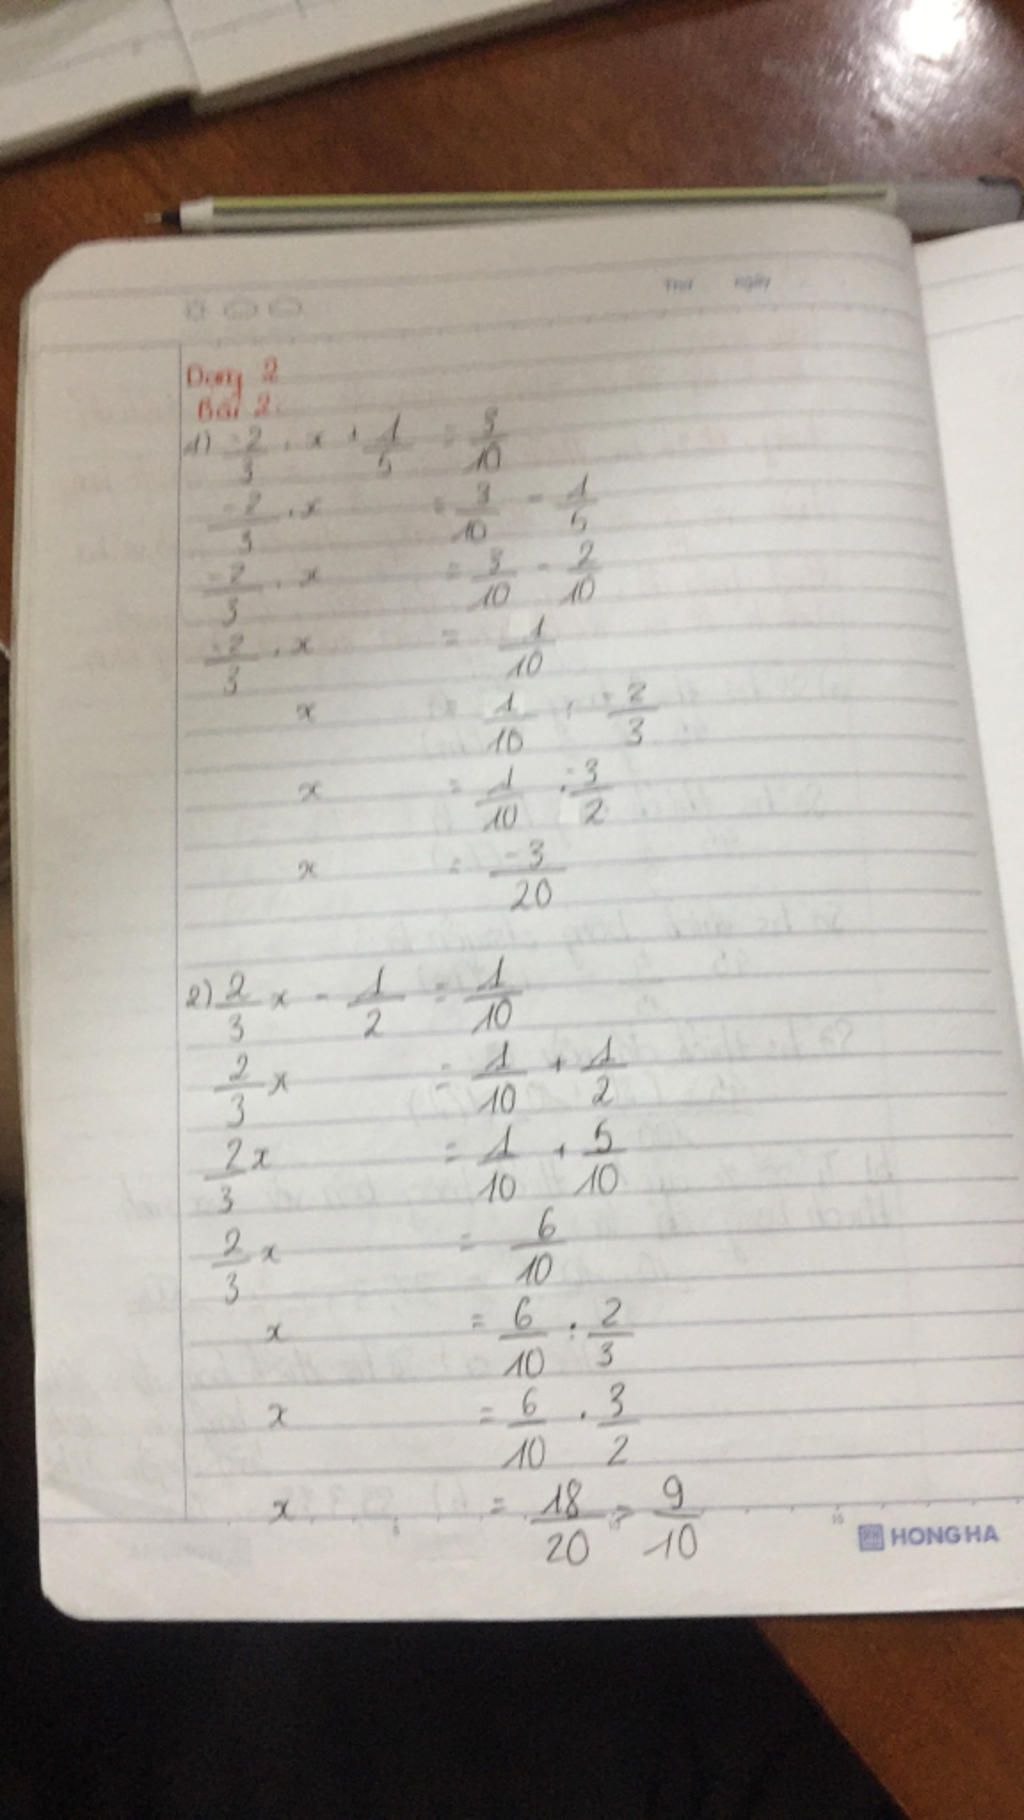 Thứ ngày
Dạng 2
Bài 2
1) -2/3 . x + 1/5 = 3/10
-2/3 . x = 3/10 - 1/5
-2/3 . x = 3/10 - 2/10
-2/3 . x = 1/10
x = 1/10 : -2/3
x = 1/10 . -3/2
x = -3/20
2) 2/3 x - 1/2 = 1/10
2/3 x = 1/10 + 1/2
2x/3 = 1/10 + 5/10
2/3 x = 6/10
x = 6/10 : 2/3
x = 6/10 . 3/2
x = 18/20 = 9/10
HONG HA